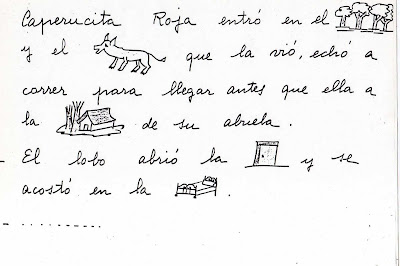 Caperucita Roja entró en el
y el que la vió, echó a
correr para llegar antes que ella a
la de su abuela.
El lobo abrió la y se
acostó en la .